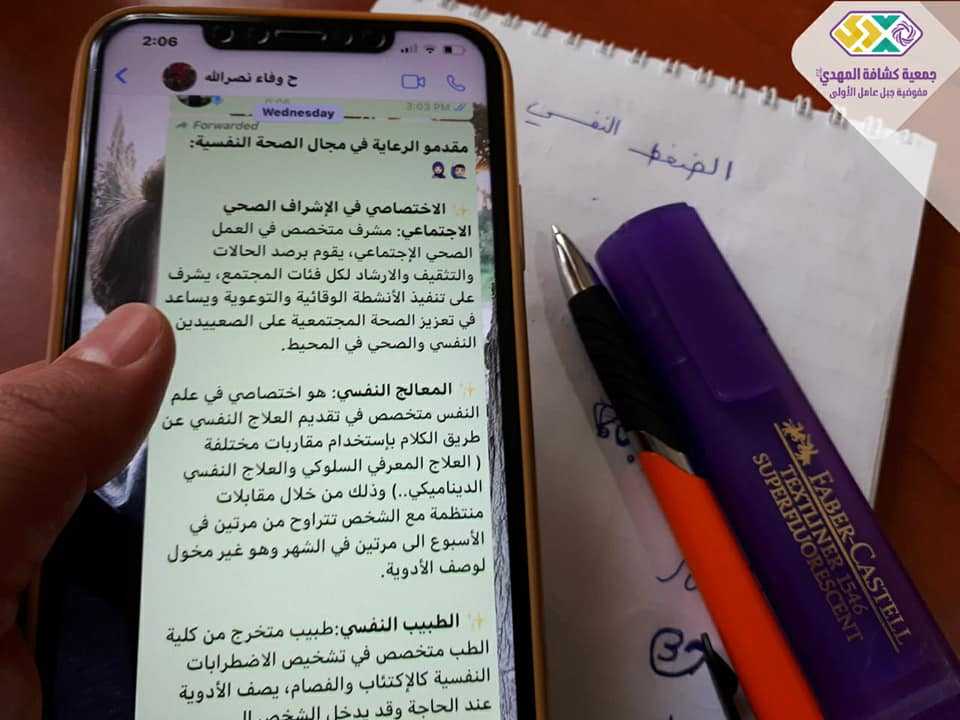 2:06
ح وفاء نصرالله
3:03 PM
Wednesday
Forwarded
مقدمو الرعاية في مجال الصحة النفسية:
✨ الاختصاصي في الإشراف الصحي
الاجتماعي: مشرف متخصص في العمل
الصحي الإجتماعي، يقوم برصد الحالات
والتثقيف والارشاد لكل فئات المجتمع، يشرف
على تنفيذ الأنشطة الوقائية والتوعوية ويساعد
في تعزيز الصحة المجتمعية على الصعيدين
النفسي والصحي في المحيط.
✨ المعالج النفسي: هو اختصاصي في علم
النفس متخصص في تقديم العلاج النفسي عن
طريق الكلام بإستخدام مقاربات مختلفة
( العلاج المعرفي السلوكي والعلاج النفسي
الديناميكي..) وذلك من خلال مقابلات
منتظمة مع الشخص تتراوح من مرتين في
الأسبوع الى مرتين في الشهر وهو غير مخول
لوصف الأدوية.
✨ الطبيب النفسي:طبيب متخرج من كلية
الطب متخصص في تشخيص الاضطرابات
النفسية كالإكتئاب والفصام، يصف الأدوية
عند الحاجة وقد يدخل الشخص
الضغط النفسي
FABER-CASTELL
TEXTLINER 1546
SUPERFLUORESCENT
جمعية كشافة المهدي
مفوضية جبل عامل الأولى